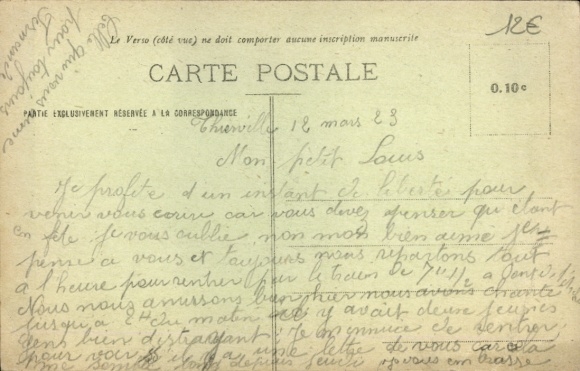 12€
Le Verso (côté vue) ne doit comporter aucune inscription manuscrite
CARTE POSTALE
0.10c
PARTIE EXCLUSIVEMENT RÉSERVÉE A LA CORRESPONDANCE
12 mars 23
Mon petit Louis
Je profite d'un instant de liberté pour
venir vous ecrire car vous devez penser qu'etant
en fete je vous oublie non mon bien aimé je
pense a vous et toujours nous repartons tout
a l'heure pour rentrer par le train de 7h 1/2 a
Nous nous amusons bien hier nous avons chanté
jusqu'a 2h du matin il y avait deux jeunes
gens bien distrayant Je m'ennuie de rentrer
pour voir s'il y a une lettre de vous car cela
me semble long depuis jeudi
vous embrasse
Celle qui vous aime
pour toujours